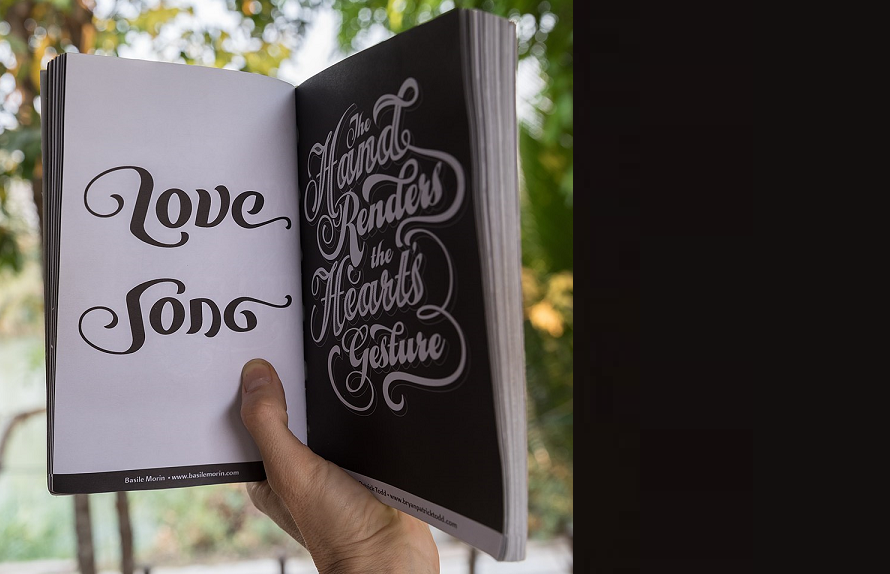 Love
Song
Basile Morin • www.basilemorin.com
The
Hand
Renders
the
Heart's
Gesture
Todd • www.bryanpatricktodd.com